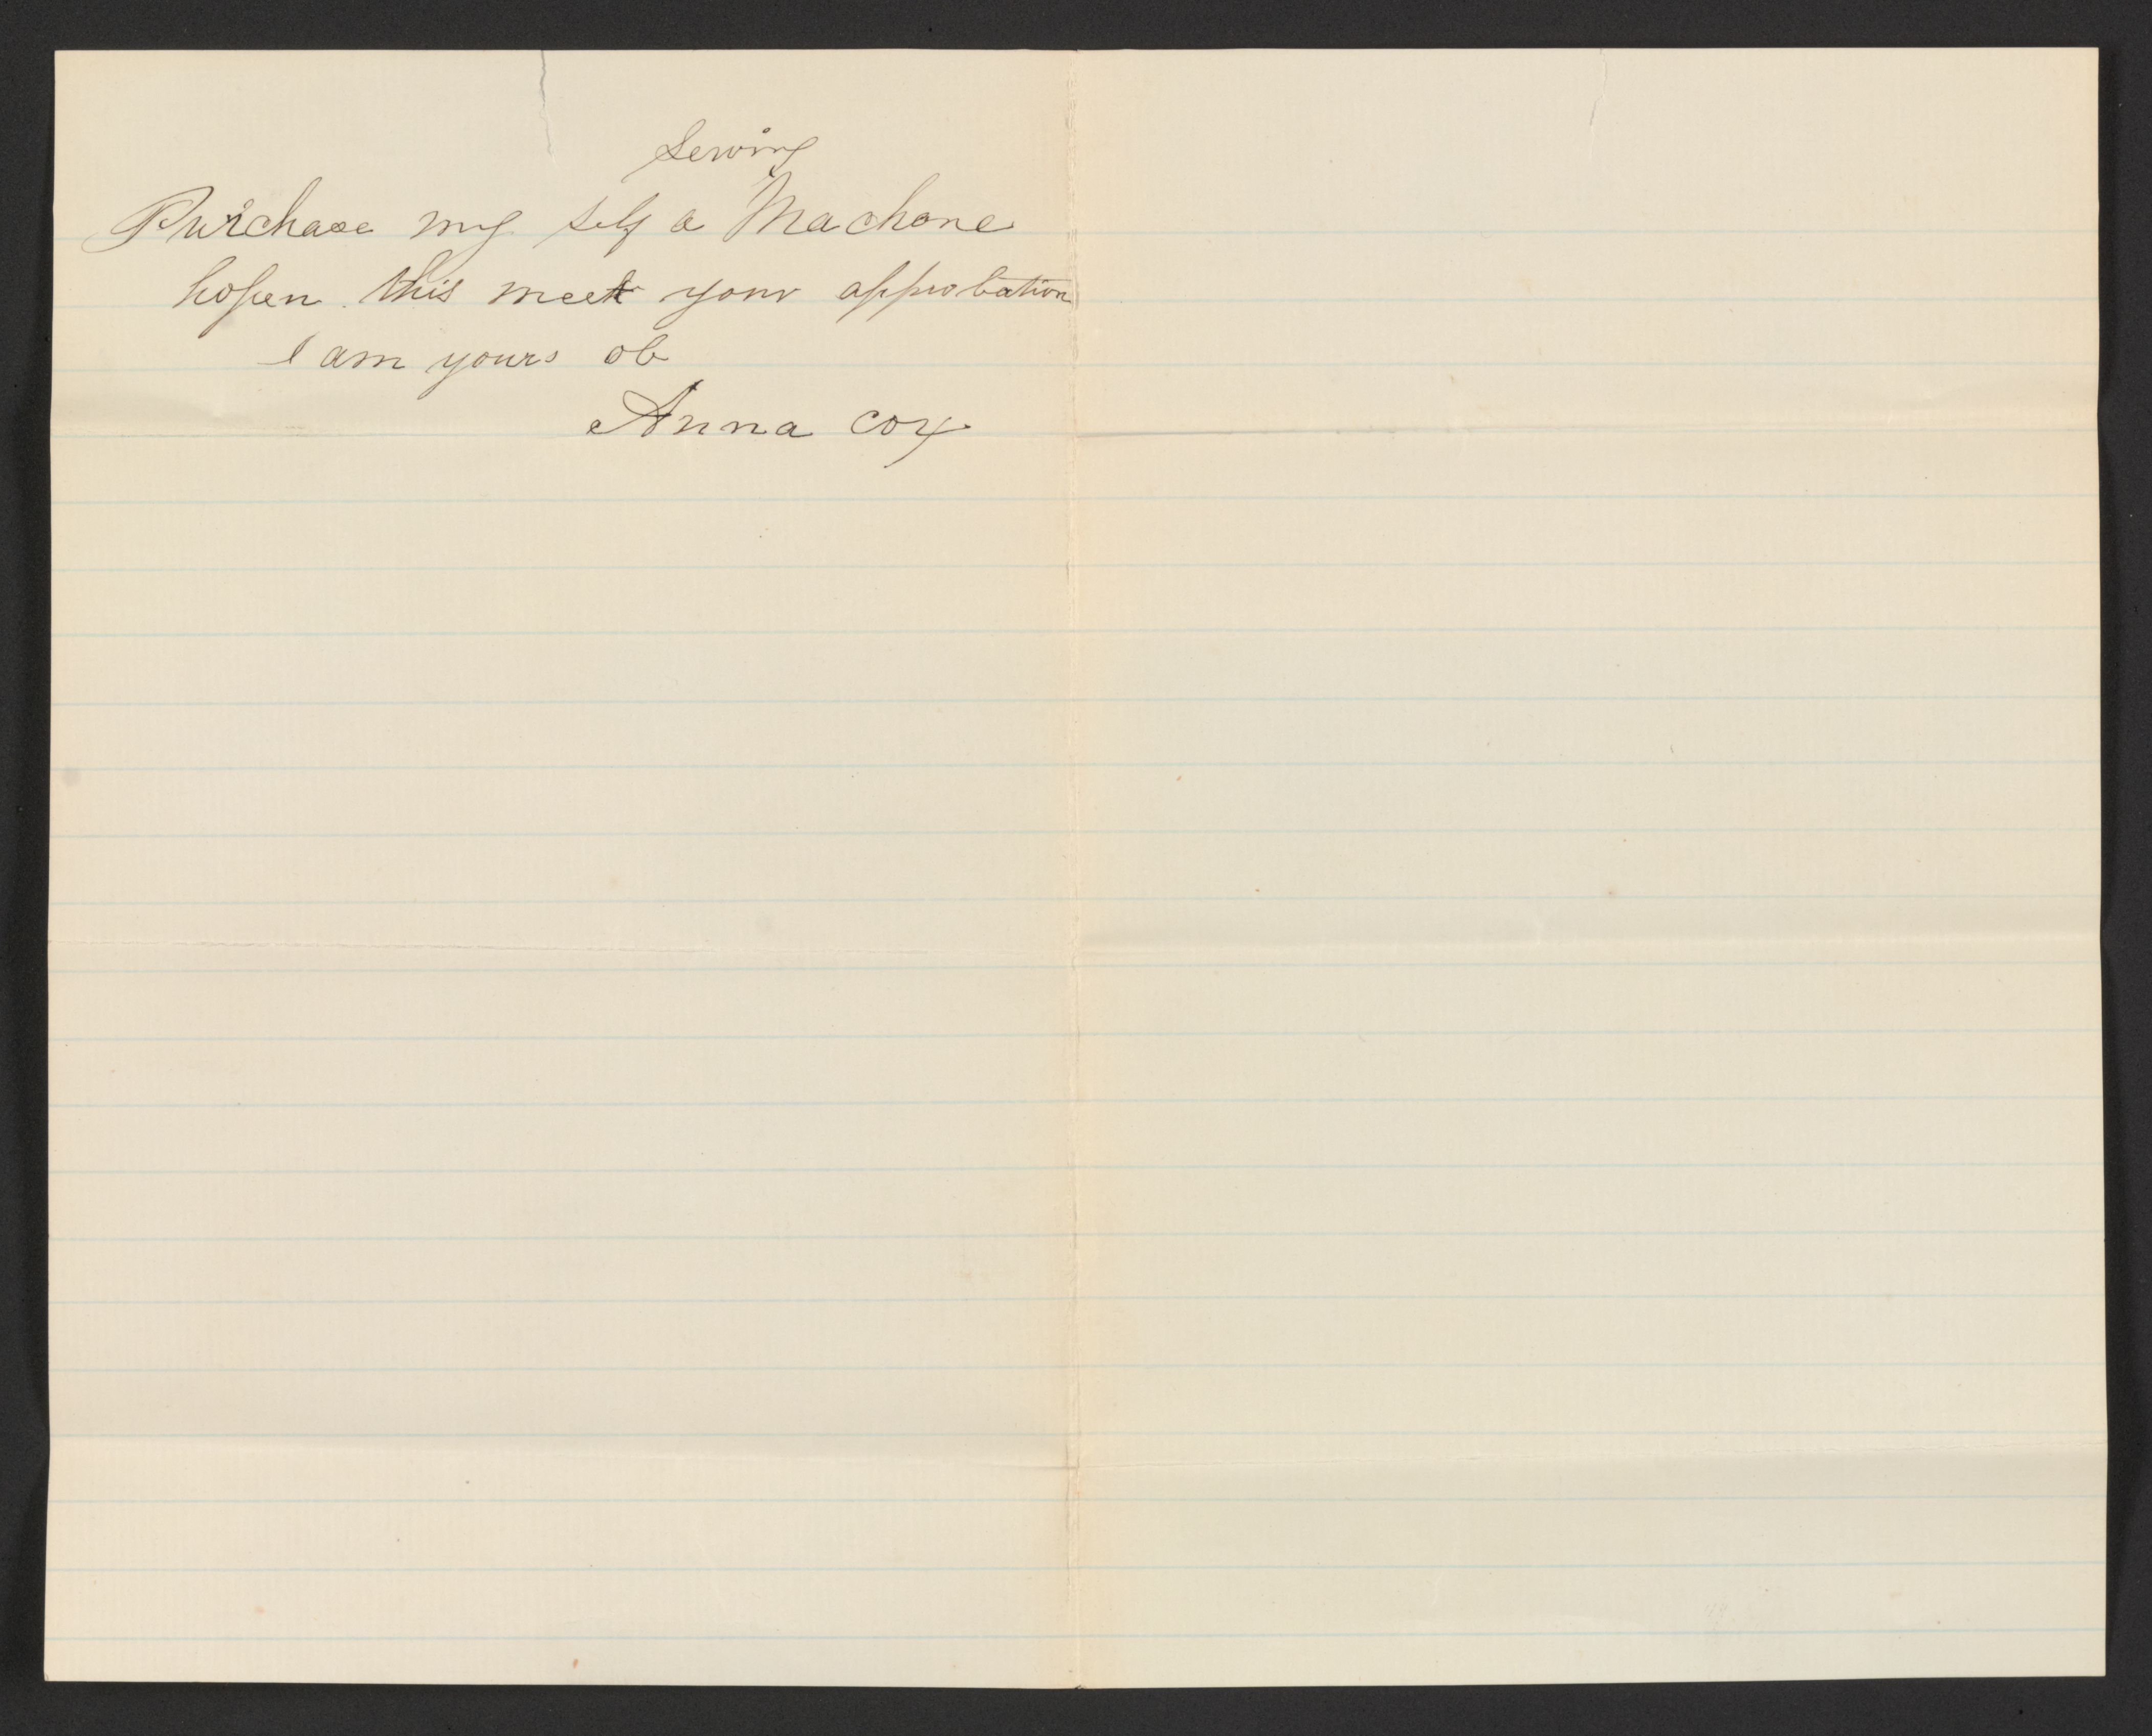 Sewing
Purchase my self a Machone
hopen this meet your approbation
I am yours ob
Anna cox